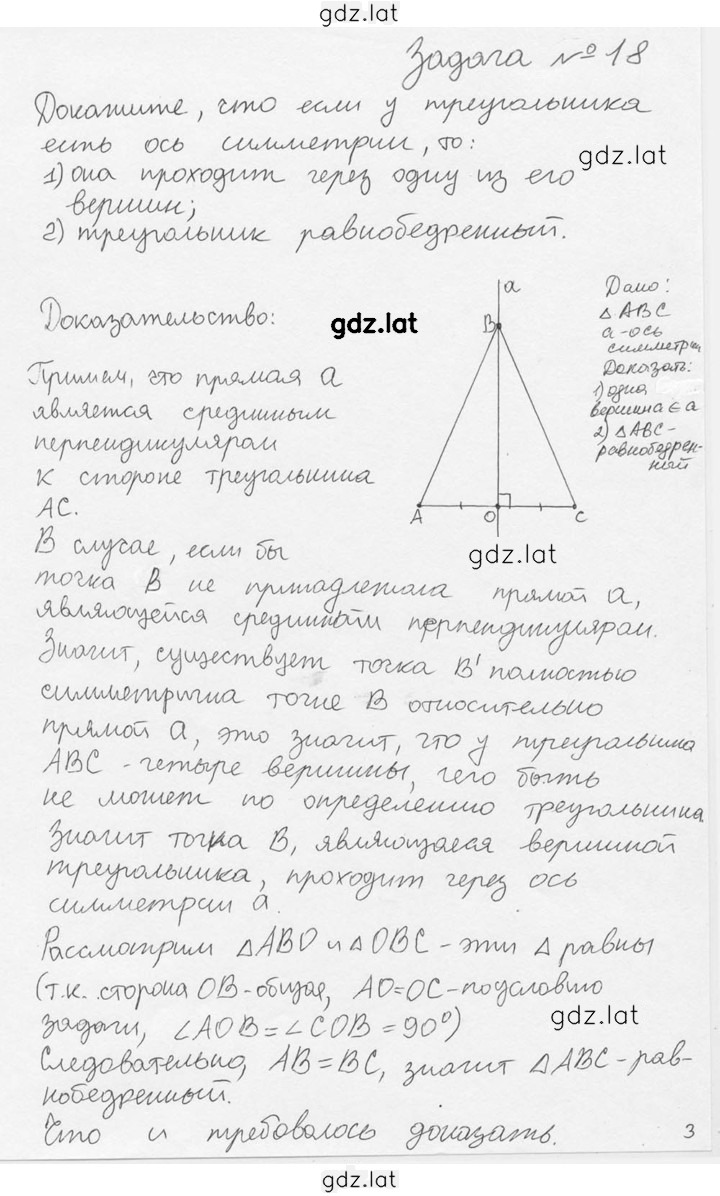 gdz.lat
Задача №18
Докажите, что если у треугольника
есть ось симметрии, то:
gdz.lat
1) она проходит через одну из его
вершин;
2) треугольник равнобедренный.
Доказательство:
gdz.lat
a
B
A
O
C
Дано:
△ABC
a-ось
симметрии
Доказать:
1) одна
вершина ∈ a
2) △ABC-
равнобедрен-
ный
Примем, что прямая a
является срединным
перпендикуляром
к стороне треугольника
AC.
gdz.lat
В случае, если бы
точка B не принадлежала прямой a,
являющейся срединным перпендикуляром.
Значит, существует точка B' полностью
симметрична точке B относительно
прямой a, это значит, что у треугольника
ABC - четыре вершины, чего быть
не может по определению треугольника
Значит точка B, являющаяся вершиной
треугольника, проходит через ось
симметрии a.
Рассмотрим △ABO и △OBC - эти △ равны
(т.к. сторона OB-общая, AO=OC-по условию
задачи, ∠AOB=∠COB=90°)
gdz.lat
Следовательно, AB=BC, значит △ABC-рав-
нобедренный.
Что и требовалось доказать.
3
gdz.lat